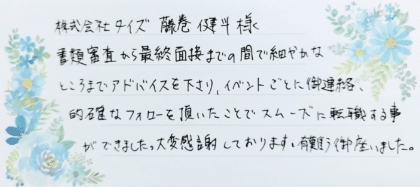 株式会社タイズ 藤巻 健斗様
書類審査から最終面接までの間で細やかな
ところまでアドバイスを下さり、イベントごとに御連絡、
的確なフォローを頂いたことでスムーズに転職する事
ができました。大変感謝しております。有難う御座いました。